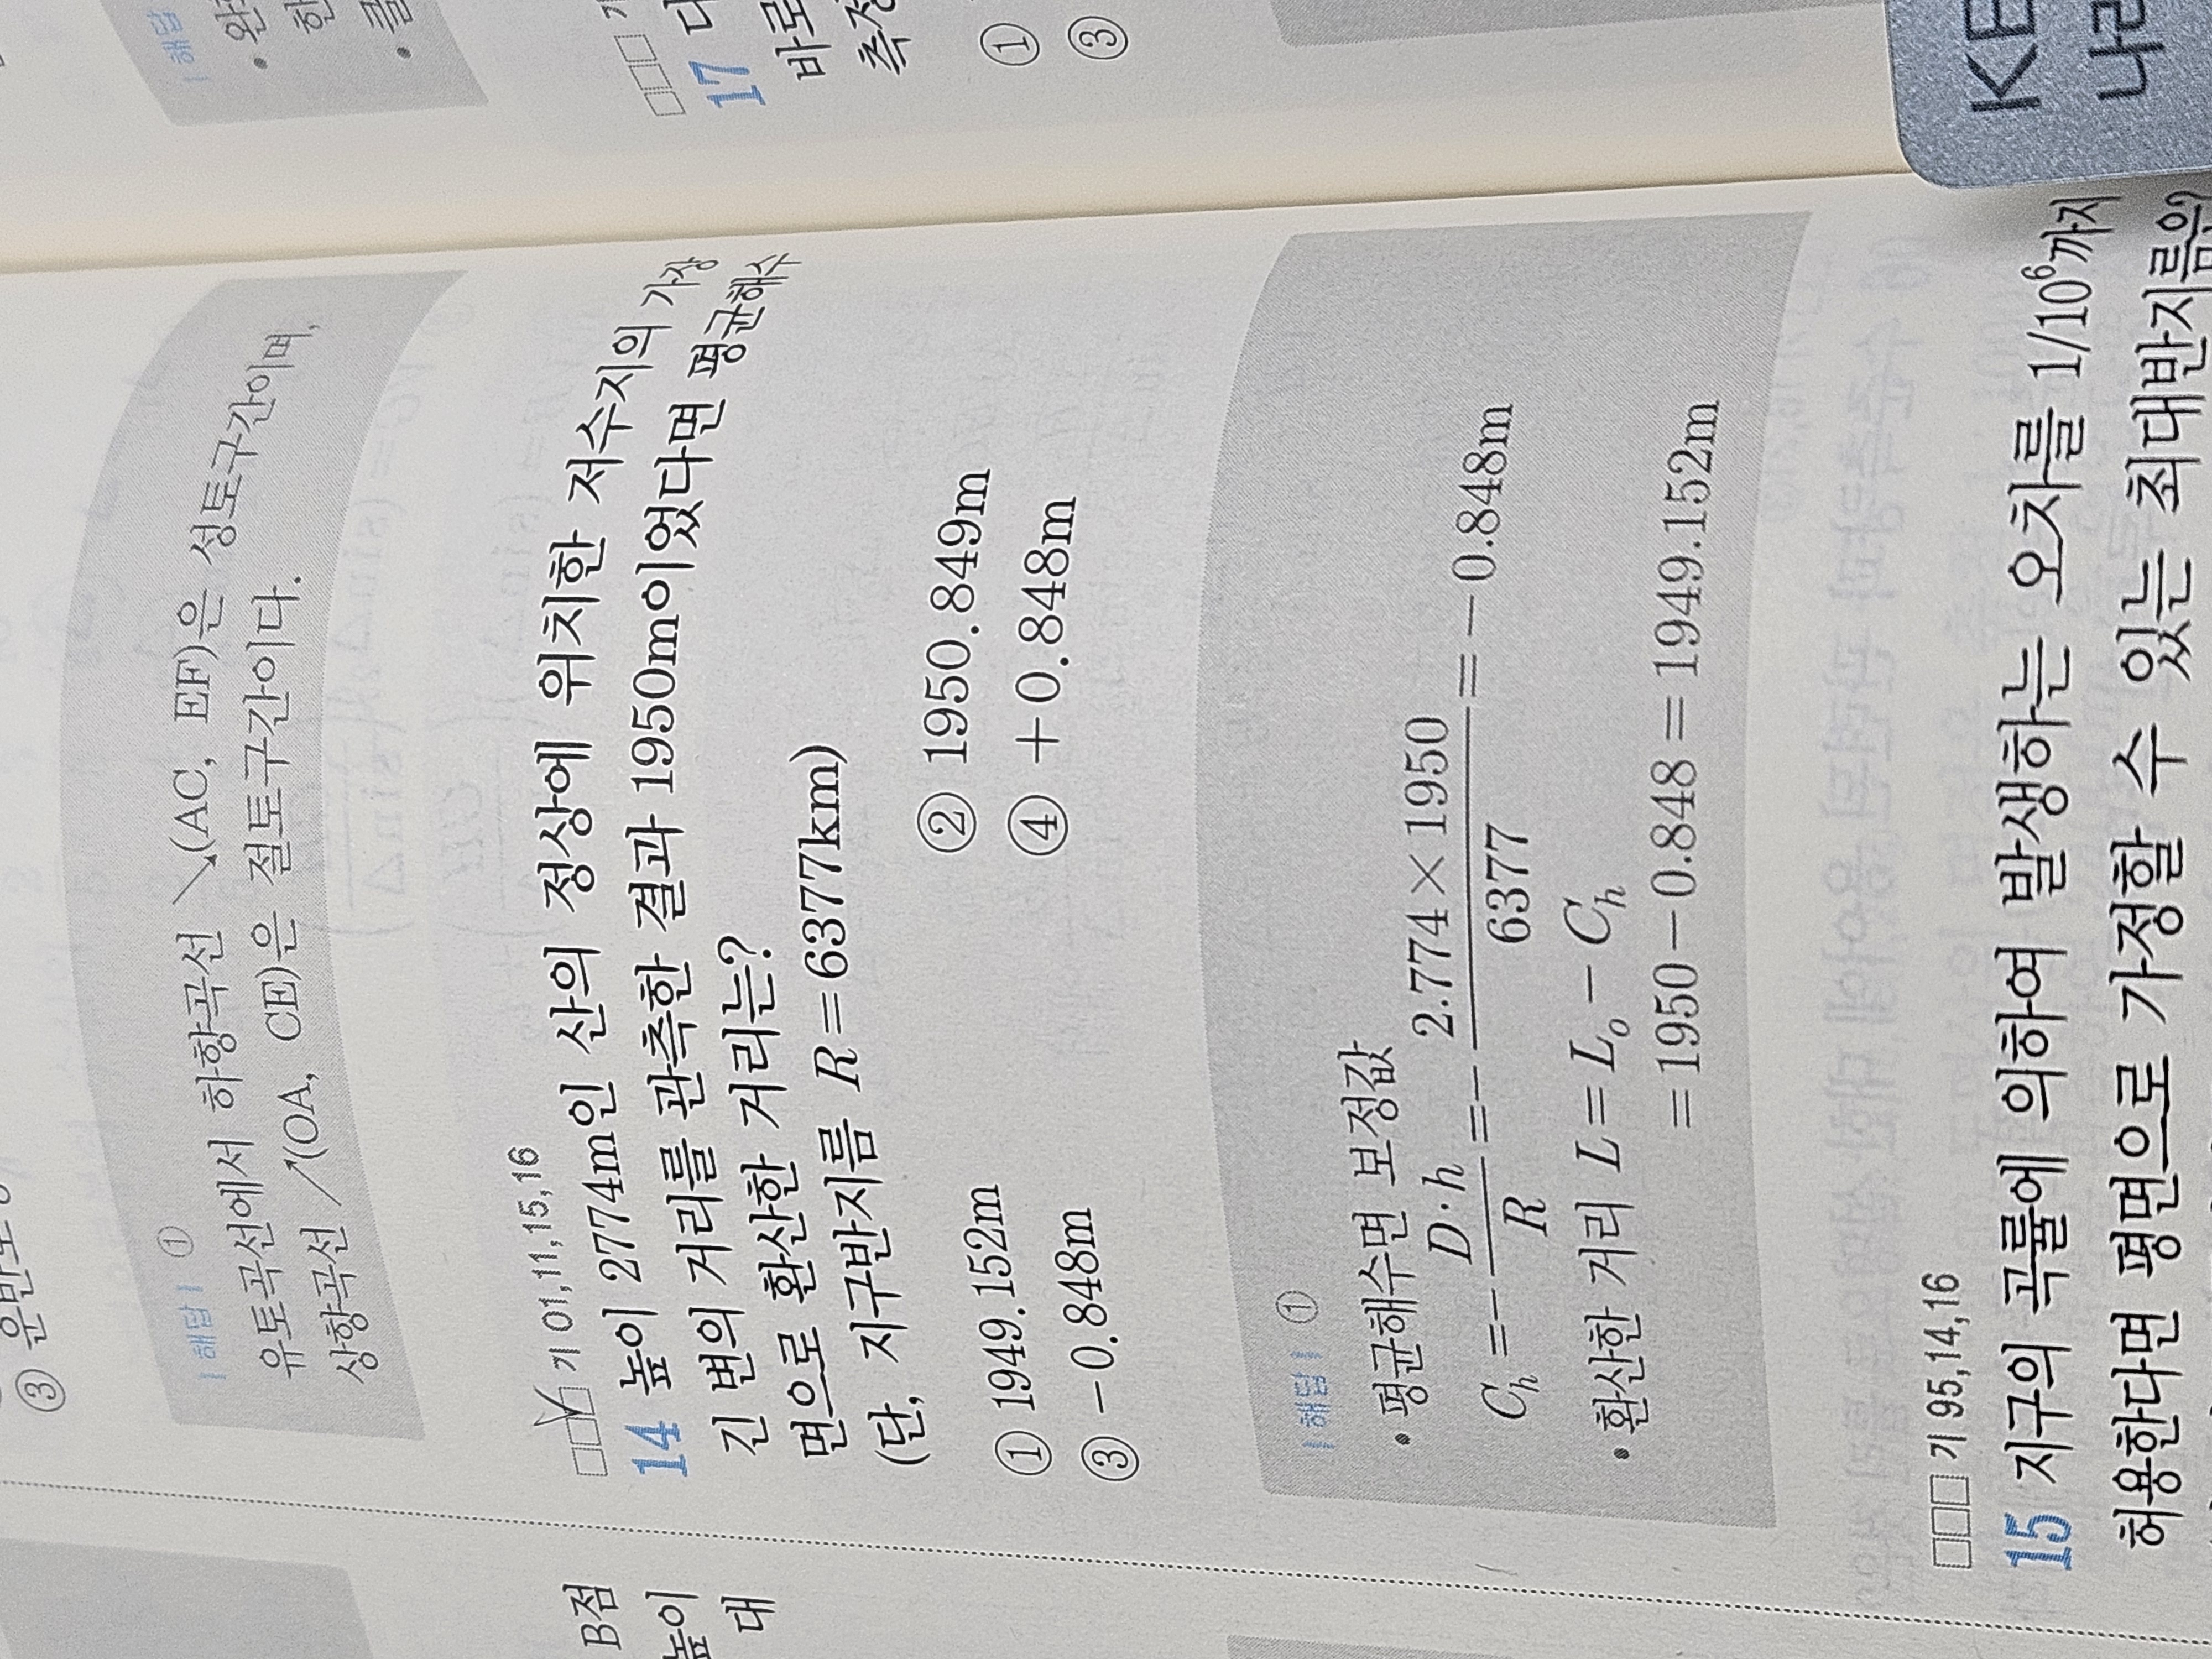 | 해답 | ①
유토곡선에서 하향곡선 ↘(AC, EF)은 성토구간이며,
상향곡선 ↗(OA, CE)은 절토구간이다.
□□☑ 기 01,11,15,16
14 높이 2774m인 산의 정상에 위치한 저수지의 가장
긴 변의 거리를 관측한 결과 1950m이었다면 평균해수
면으로 환산한 거리는?
(단, 지구반지름 R=6377km)
① 1949.152m ② 1950.849m
③ -0.848m ④ +0.848m
| 해답 | ①
• 평균해수면 보정값
C_h = -\frac{D·h}{R} = -\frac{2.774×1950}{6377} = -0.848m
• 환산한 거리 L = L_o - C_h
= 1950-0.848 = 1949.152m
□□□ 기 95,14,16
15 지구의 곡률에 의하여 발생하는 오차를 1/10⁶까지
허용한다면 평면으로 가정할 수 있는 최대반지름은?
B점
높이
대
| 해답
□□□
17
바로
①
③
나라